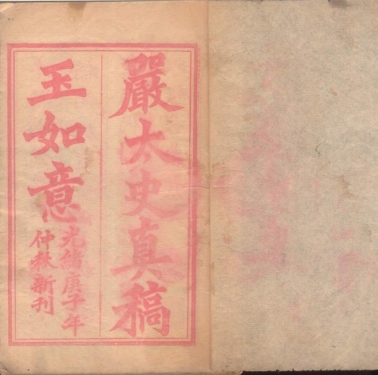 嚴太史真稿
玉如意
光緒庚子年
仲秋新刊